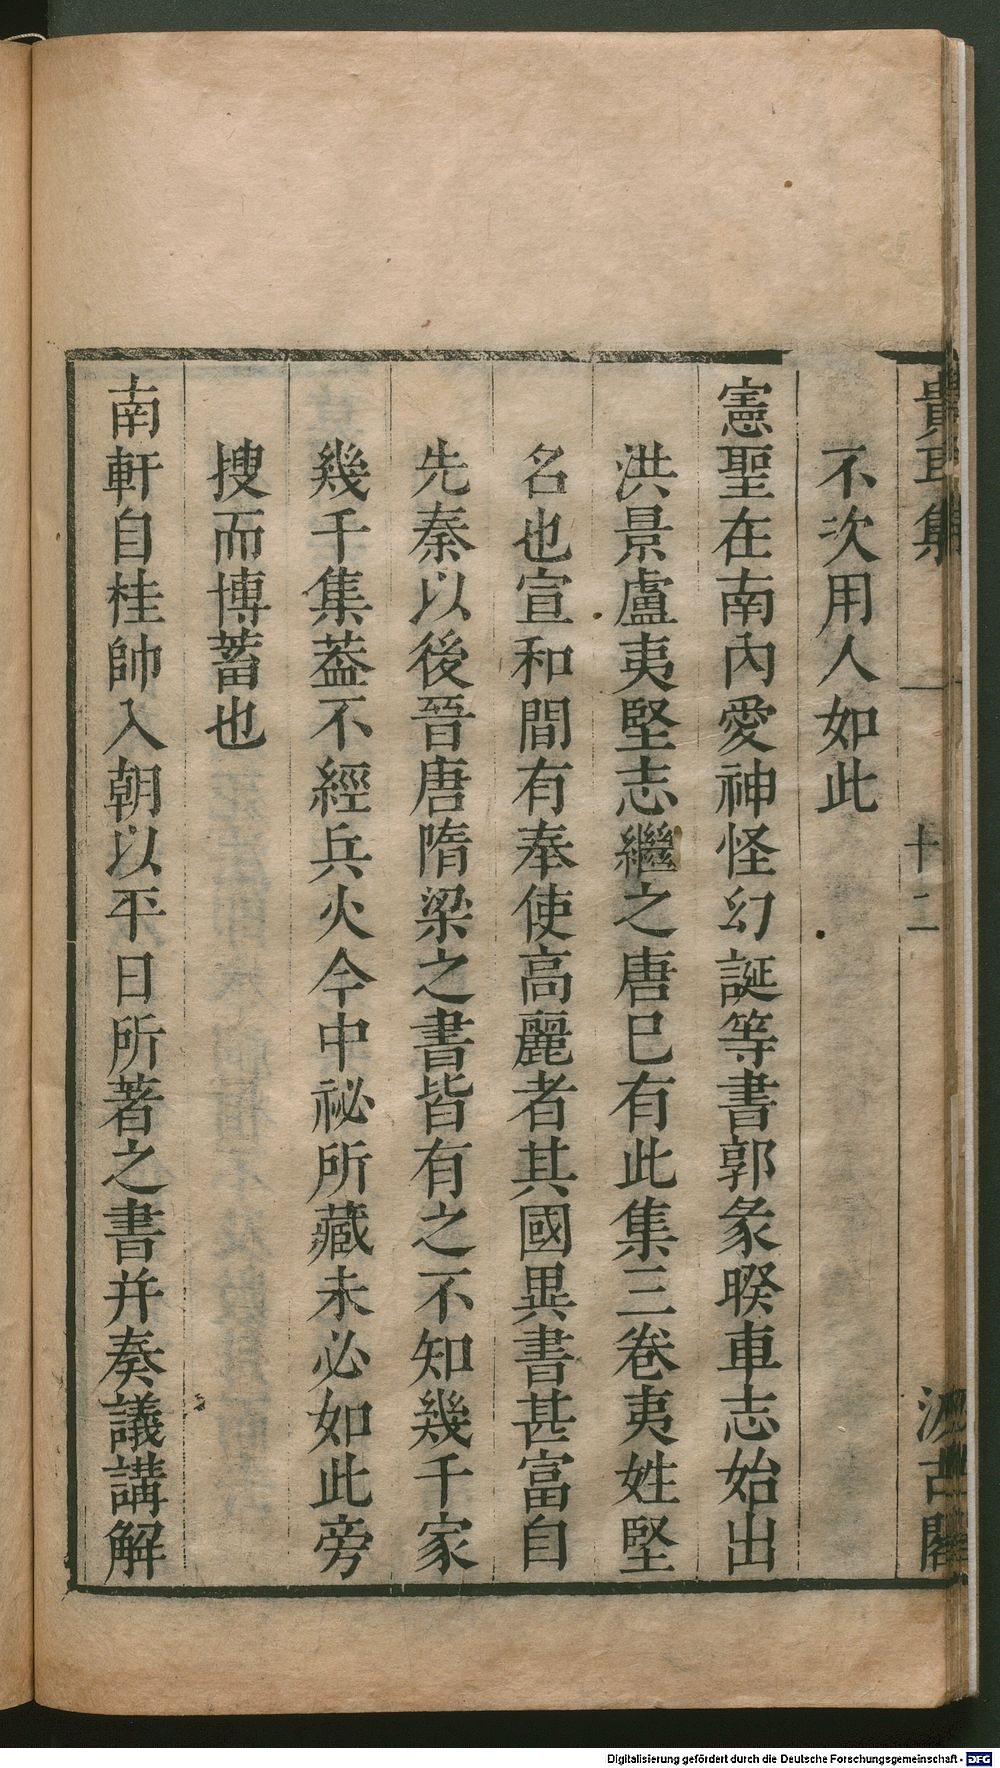 貴耳集 十二 汲古閣
不次用人如此
憲聖在南內愛神怪幻誕等書郭彖暌車志始出
洪景盧夷堅志繼之唐巳有此集三卷夷姓堅
名也宣和間有奉使高麗者其國異書甚富自
先秦以後晉唐隋梁之書皆有之不知幾千家
幾千集葢不經兵火今中祕所藏未必如此旁
搜而博蓄也
南軒自桂帥入朝以平日所著之書并奏議講解
Digitalisierung gefördert durch die Deutsche Forschungsgemeinschaft - DFG